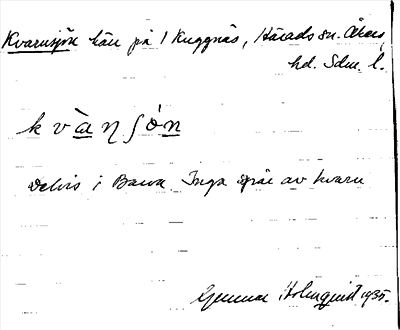 Kvarnsjön kärr på 1 Kuggnäs, Härads sn. Åkers
hd. Sdm. l.
k v à n ʃ ò n
delvis i Barva. Inga spår av kvarn
Gunnar Holmquist 1935.